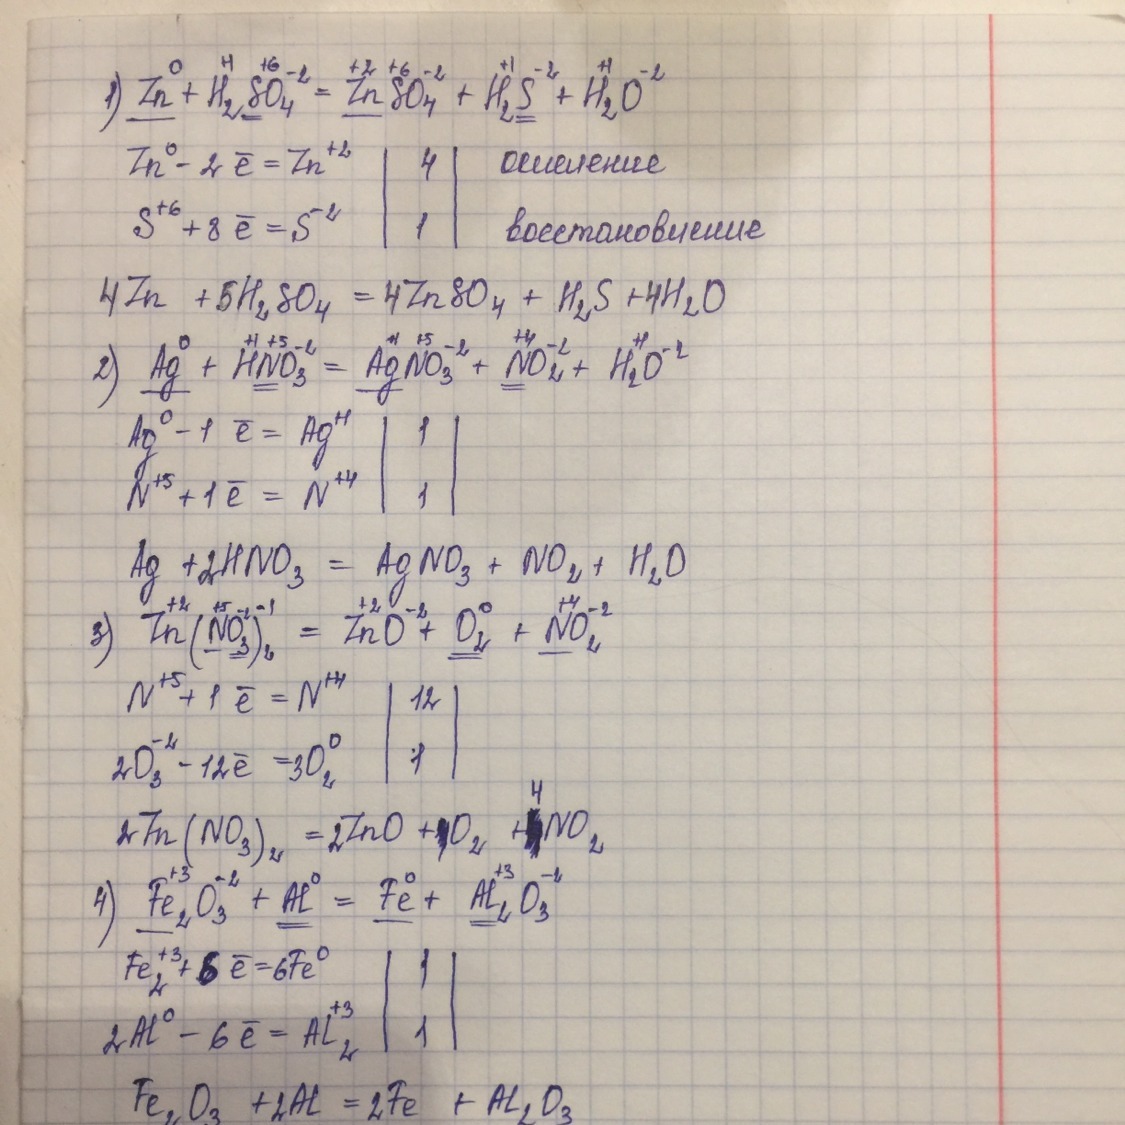 1) Zn⁰ + H₂⁺¹S⁺⁶O₄⁻² = Zn⁺²S⁺⁶O₄⁻² + H₂⁺¹S⁻² + H₂⁺¹O⁻²
Zn⁰ - 2ē = Zn⁺² | 4 | окисление
S⁺⁶ + 8ē = S⁻² | 1 | восстановление
4Zn + 5H₂SO₄ = 4ZnSO₄ + H₂S + 4H₂O
2) Ag⁰ + H⁺¹N⁺⁵O₃⁻² = Ag⁺¹N⁺⁵O₃⁻² + N⁺⁴O₂⁻² + H₂⁺¹O⁻²
Ag⁰ - 1ē = Ag⁺¹ | 1 |
N⁺⁵ + 1ē = N⁺⁴ | 1 |
Ag + 2HNO₃ = AgNO₃ + NO₂ + H₂O
3) Zn⁺²(N⁺⁵O₃⁻²)₂⁻¹ = Zn⁺²O⁻² + O₂⁰ + N⁺⁴O₂⁻²
N⁺⁵ + 1ē = N⁺⁴ | 12 |
2O₃⁻² - 12ē = 3O₂⁰ | 1 |
2Zn(NO₃)₂ = 2ZnO + O₂ + 4NO₂
4) Fe₂⁺³O₃⁻² + Al⁰ = Fe⁰ + Al₂⁺³O₃⁻²
Fe₂⁺³ + 6ē = 6Fe⁰ | 1 |
2Al⁰ - 6ē = Al₂⁺³ | 1 |
Fe₂O₃ + 2Al = 2Fe + Al₂O₃